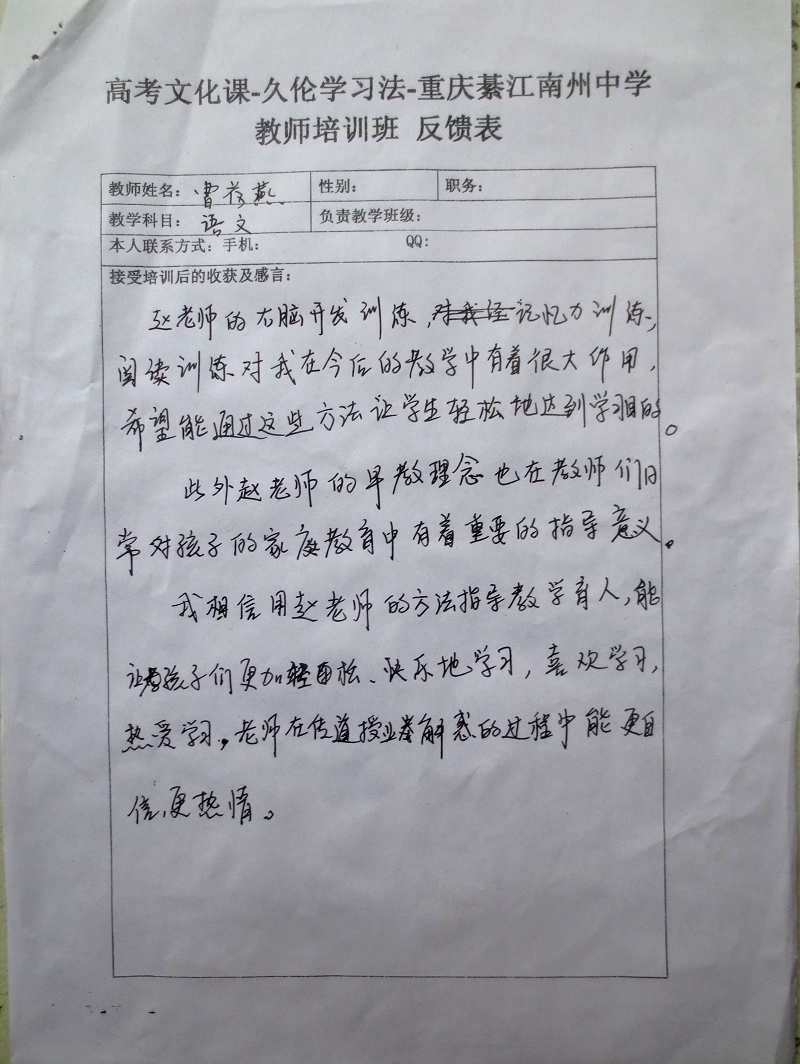 高考文化课-久伦学习法-重庆綦江南州中学
教师培训班 反馈表
教师姓名：曹 燕 性别： 职务：
教学科目：语文 负责教学班级：
本人联系方式：手机： QQ：
接受培训后的收获及感言：
赵老师的大脑开发训练，记忆力训练，
阅读训练对我在今后的教学中有着很大作用，
希望能通过这些方法让学生轻松地达到学习目的。
此外赵老师的早教理念也在教师们日
常对孩子的家庭教育中有着重要的指导意义。
我相信用赵老师的方法指导教学育人，能
让孩子们更加轻松、快乐地学习，喜欢学习，
热爱学习。老师在传道授业解惑的过程中能更自
信，更热情。